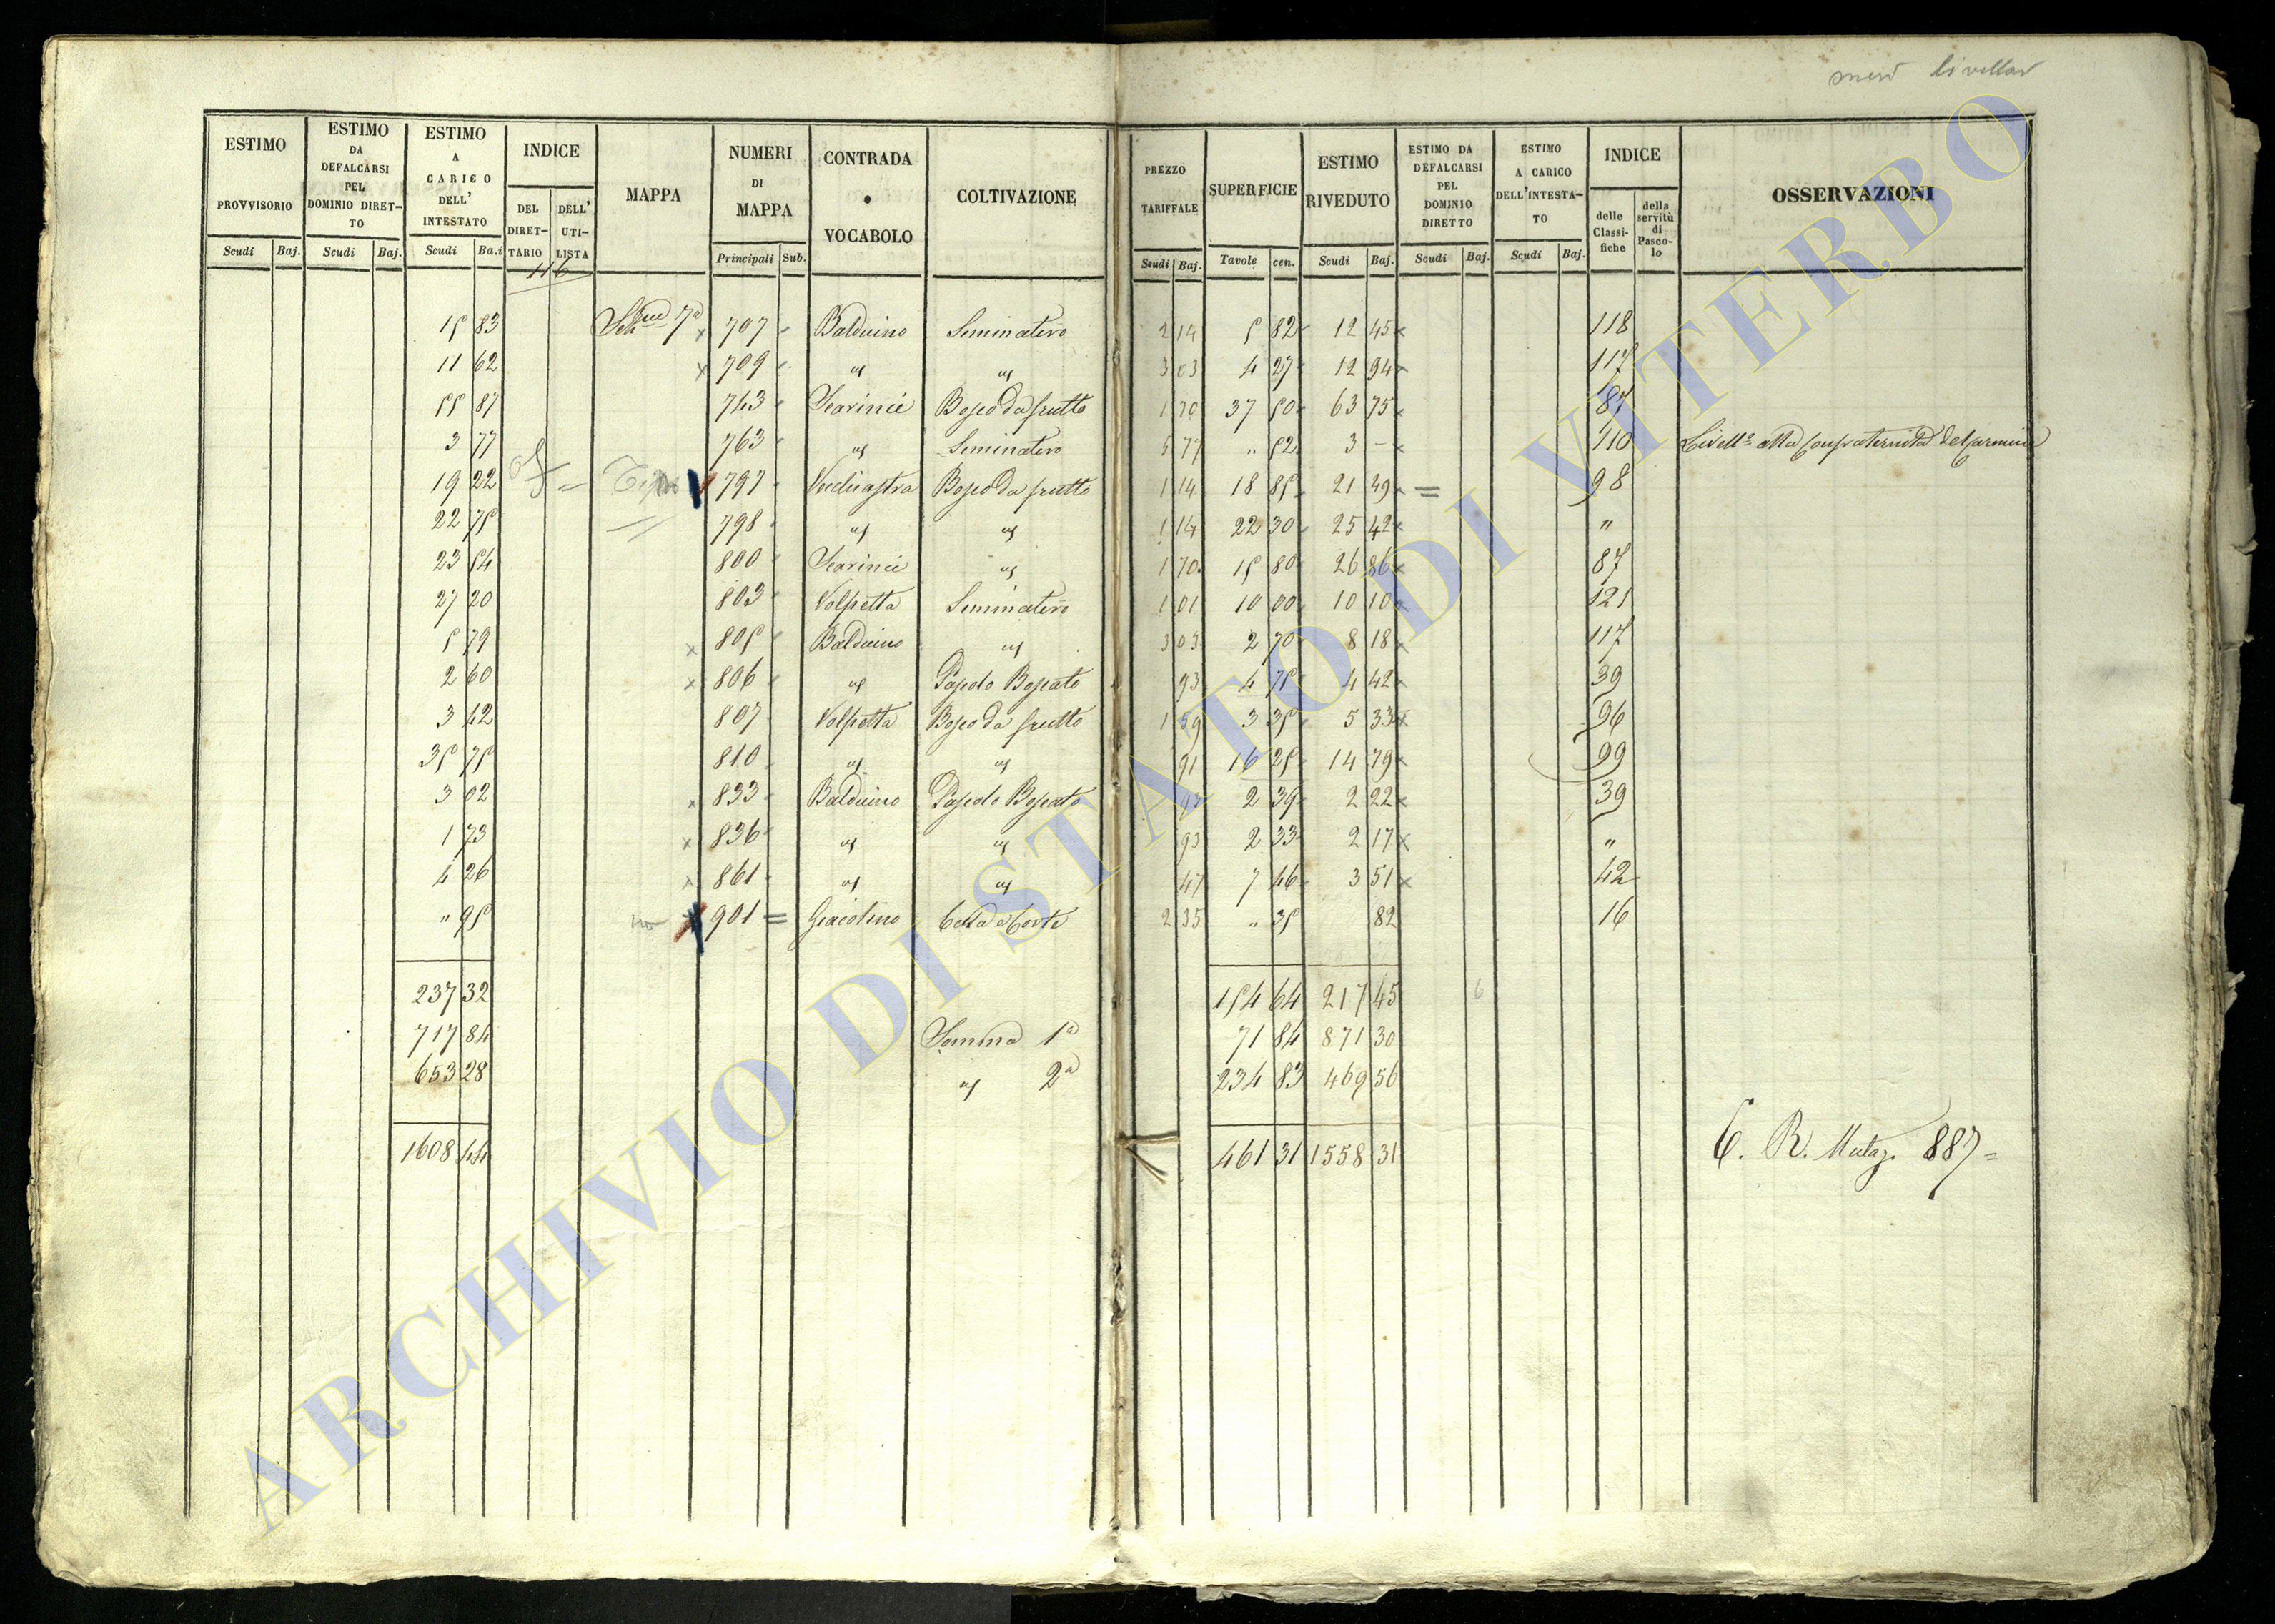 livellar
ESTIMO PROVVISORIO | ESTIMO DA DEFALCARSI PEL DOMINIO DIRETTO | ESTIMO A CARICO DELL' INTESTATO | INDICE | MAPPA | NUMERI DI MAPPA | CONTRADA o VOCABOLO | COLTIVAZIONE | PREZZO TARIFFALE | SUPERFICIE | ESTIMO RIVEDUTO | ESTIMO DA DEFALCARSI PEL DOMINIO DIRETTO | ESTIMO A CARICO DELL'INTESTATO | INDICE | OSSERVAZIONI
DEL DIRETTARIO | DELL' UTILISTA | delle Classifiche | della servitù di Pascolo
Scudi | Baj. | Scudi | Baj. | Scudi | Ba.i | Principali | Sub. | Scudi | Baj. | Tavole | cen. | Scudi | Baj. | Scudi | Baj. | Scudi | Baj.
116
15 83 | 7a x 707 | Balduino | Seminativo | 2 14 | 5 82 | 12 45 x | 118
11 62 | x 709 | " | " | 3 03 | 4 27 | 12 94 | 117
55 87 | 743 | Scarincie | Bosco da frutto | 1 70 | 37 50 | 63 75 x | 87
3 77 | 763 | " | Seminativo | 5 77 | " 52 | 3 – x | 110 | Livello alla Confraternita del Carmine
19 22 | 797 | Bosco da frutto | 1 14 | 18 85 | 21 49 x = | 98
22 75 | 798 | " | " | 1 14 | 22 30 | 25 42 x | "
23 54 | 800 | Scarincie | " | 1 70 | 15 80 | 26 86 x | 87
27 20 | 803 | Volpetta | Seminativo | 1 01 | 10 00 | 10 10 | 121
5 79 | x 805 | Balduino | " | 3 03 | 2 70 | 8 18 x | 117
2 60 | x 806 | " | Pascolo Boscato | 93 | 4 75 | 4 42 x | 39
3 42 | 807 | Volpetta | Bosco da frutto | 1 59 | 3 35 | 5 33 x | 96
35 75 | 810 | " | " | 91 | 16 25 | 14 79 x | 99
3 02 | x 833 | Balduino | Pascolo Boscato | 93 | 2 39 | 2 22 x | 39
1 73 | x 836 | " | " | 93 | 2 33 | 2 17 x | "
4 26 | x 861 | " | " | 47 | 7 46 | 3 51 x | 42
" 95 | no 901 = | Giacolino | Casa e Corte | 2 35 | " 35 | 82 | 16
237 32 | 154 64 | 217 45 | 6
717 84 | Somma 1a | 71 84 | 871 30
653 28 | " 2a | 234 83 | 469 56
1608 44 | 461 31 | 1558 31 | C. R. Mutaz. 887 =
ARCHIVIO DI STATO DI VITERBO